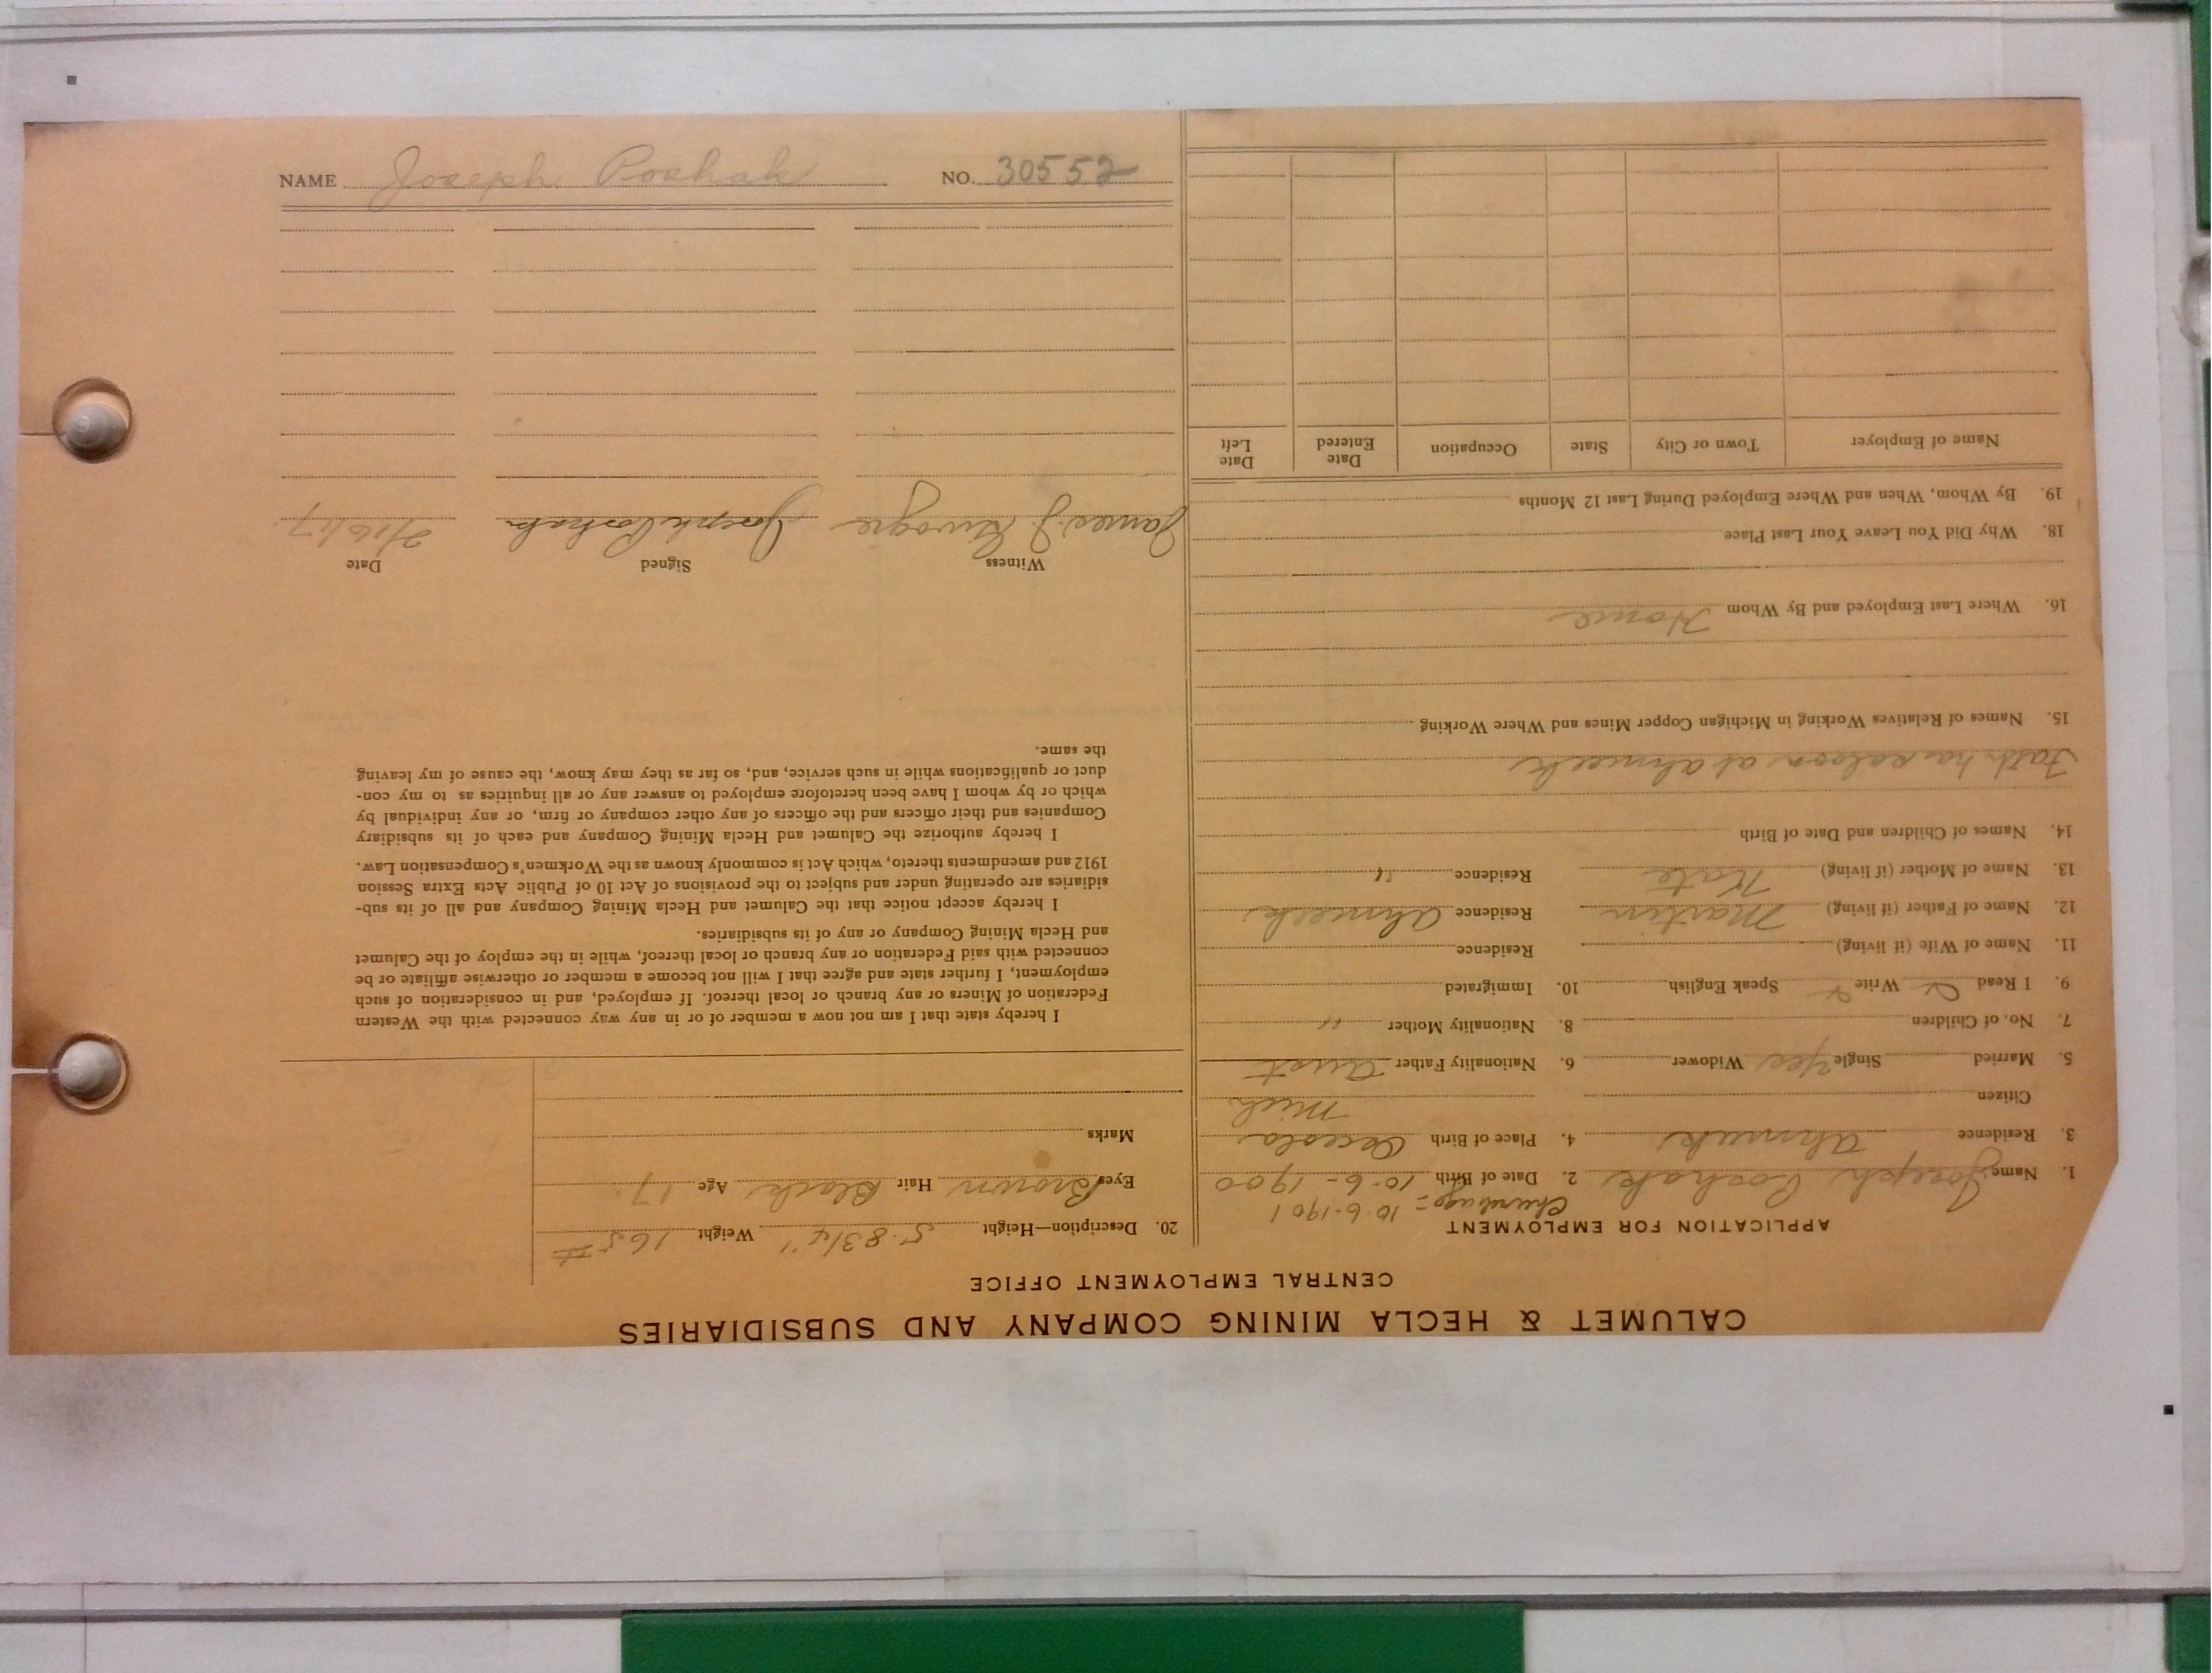 NAME Joseph Poshak NO. 30552
CALUMET & HECLA MINING COMPANY AND SUBSIDIARIES
CENTRAL EMPLOYMENT OFFICE
APPLICATION FOR EMPLOYMENT
10-6-1901
1. Name Joseph Poshak 2. Date of Birth 10-6-1900
3. Residence Ahmeek 4. Place of Birth Osceola
Citizen Mich
5. Married Single Yes Widower 6. Nationality Father Aust
7. No. of Children 8. Nationality Mother "
9. I Read Write Speak English 10. Immigrated
11. Name of Wife (if living) Residence
12. Name of Father (if living) Martin Residence Ahmeek
13. Name of Mother (if living) Kate Residence "
14. Names of Children and Date of Birth
Fath has saloon at Ahmeek
15. Names of Relatives Working in Michigan Copper Mines and Where Working
16. Where Last Employed and By Whom Home
18. Why Did You Leave Your Last Place
19. By Whom, When and Where Employed During Last 12 Months
Name of Employer Town or City State Occupation Date Entered Date Left
20. Description—Height 5-8 3/4" Weight 165 #
Eyes Brown Hair Black Age 17
Marks
I hereby state that I am not now a member of or in any way connected with the Western
Federation of Miners or any branch or local thereof. If employed, and in consideration of such
employment, I further state and agree that I will not become a member or otherwise affiliate or be
connected with said Federation or any branch or local thereof, while in the employ of the Calumet
and Hecla Mining Company or any of its subsidiaries.
I hereby accept notice that the Calumet and Hecla Mining Company and all of its sub-
sidiaries are operating under and subject to the provisions of Act 10 of Public Acts Extra Session
1912 and amendments thereto, which Act is commonly known as the Workmen's Compensation Law.
I hereby authorize the Calumet and Hecla Mining Company and each of its subsidiary
Companies and their officers and the officers of any other company or firm, or any individual by
which or by whom I have been heretofore employed to answer any or all inquiries as to my con-
duct or qualifications while in such service, and, so far as they may know, the cause of my leaving
the same.
Witness Signed Date
James J. Joseph Poshak